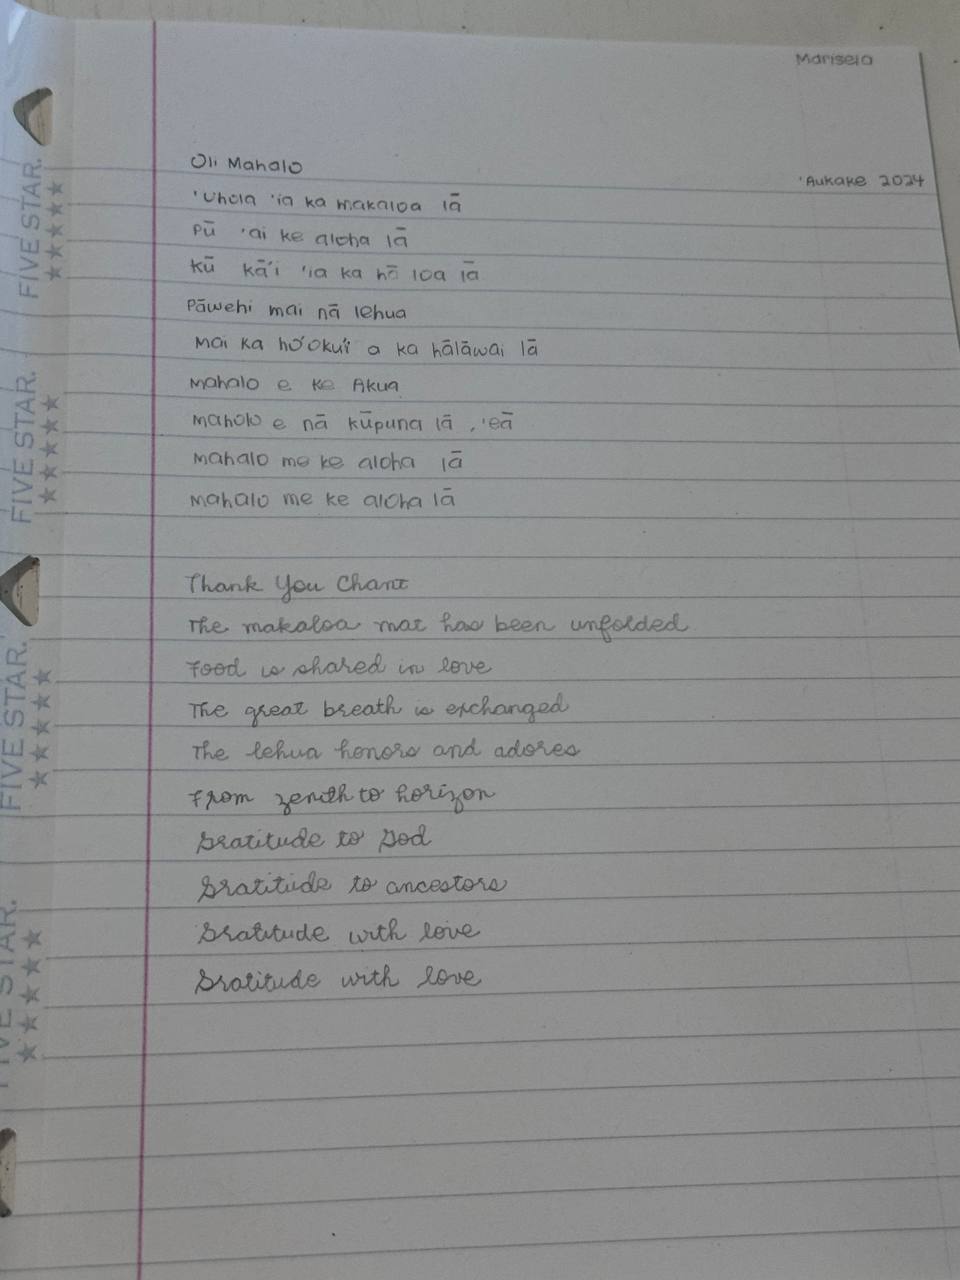 Marisela
Oli Mahalo
'Aukake 2024
'Uhola 'ia ka makaloa lā
Pū 'ai ke aloha lā
Kū kā'i 'ia ka hā loa lā
Pāwehi mai nā lehua
Mai ka ho'oku'i a ka hālāwai lā
Mahalo e ke Akua
Mahalo e nā kūpuna lā, 'eā
Mahalo me ke aloha lā
Mahalo me ke aloha lā
Thank You Chant
The makaloa mat has been unfolded
Food is shared in love
The great breath is exchanged
The lehua honors and adores
From zenith to horizon
Gratitude to God
Gratitude to ancestors
Gratitude with love
Gratitude with love
FIVE STAR.
FIVE STAR.
FIVE STAR.
FIVE STAR.